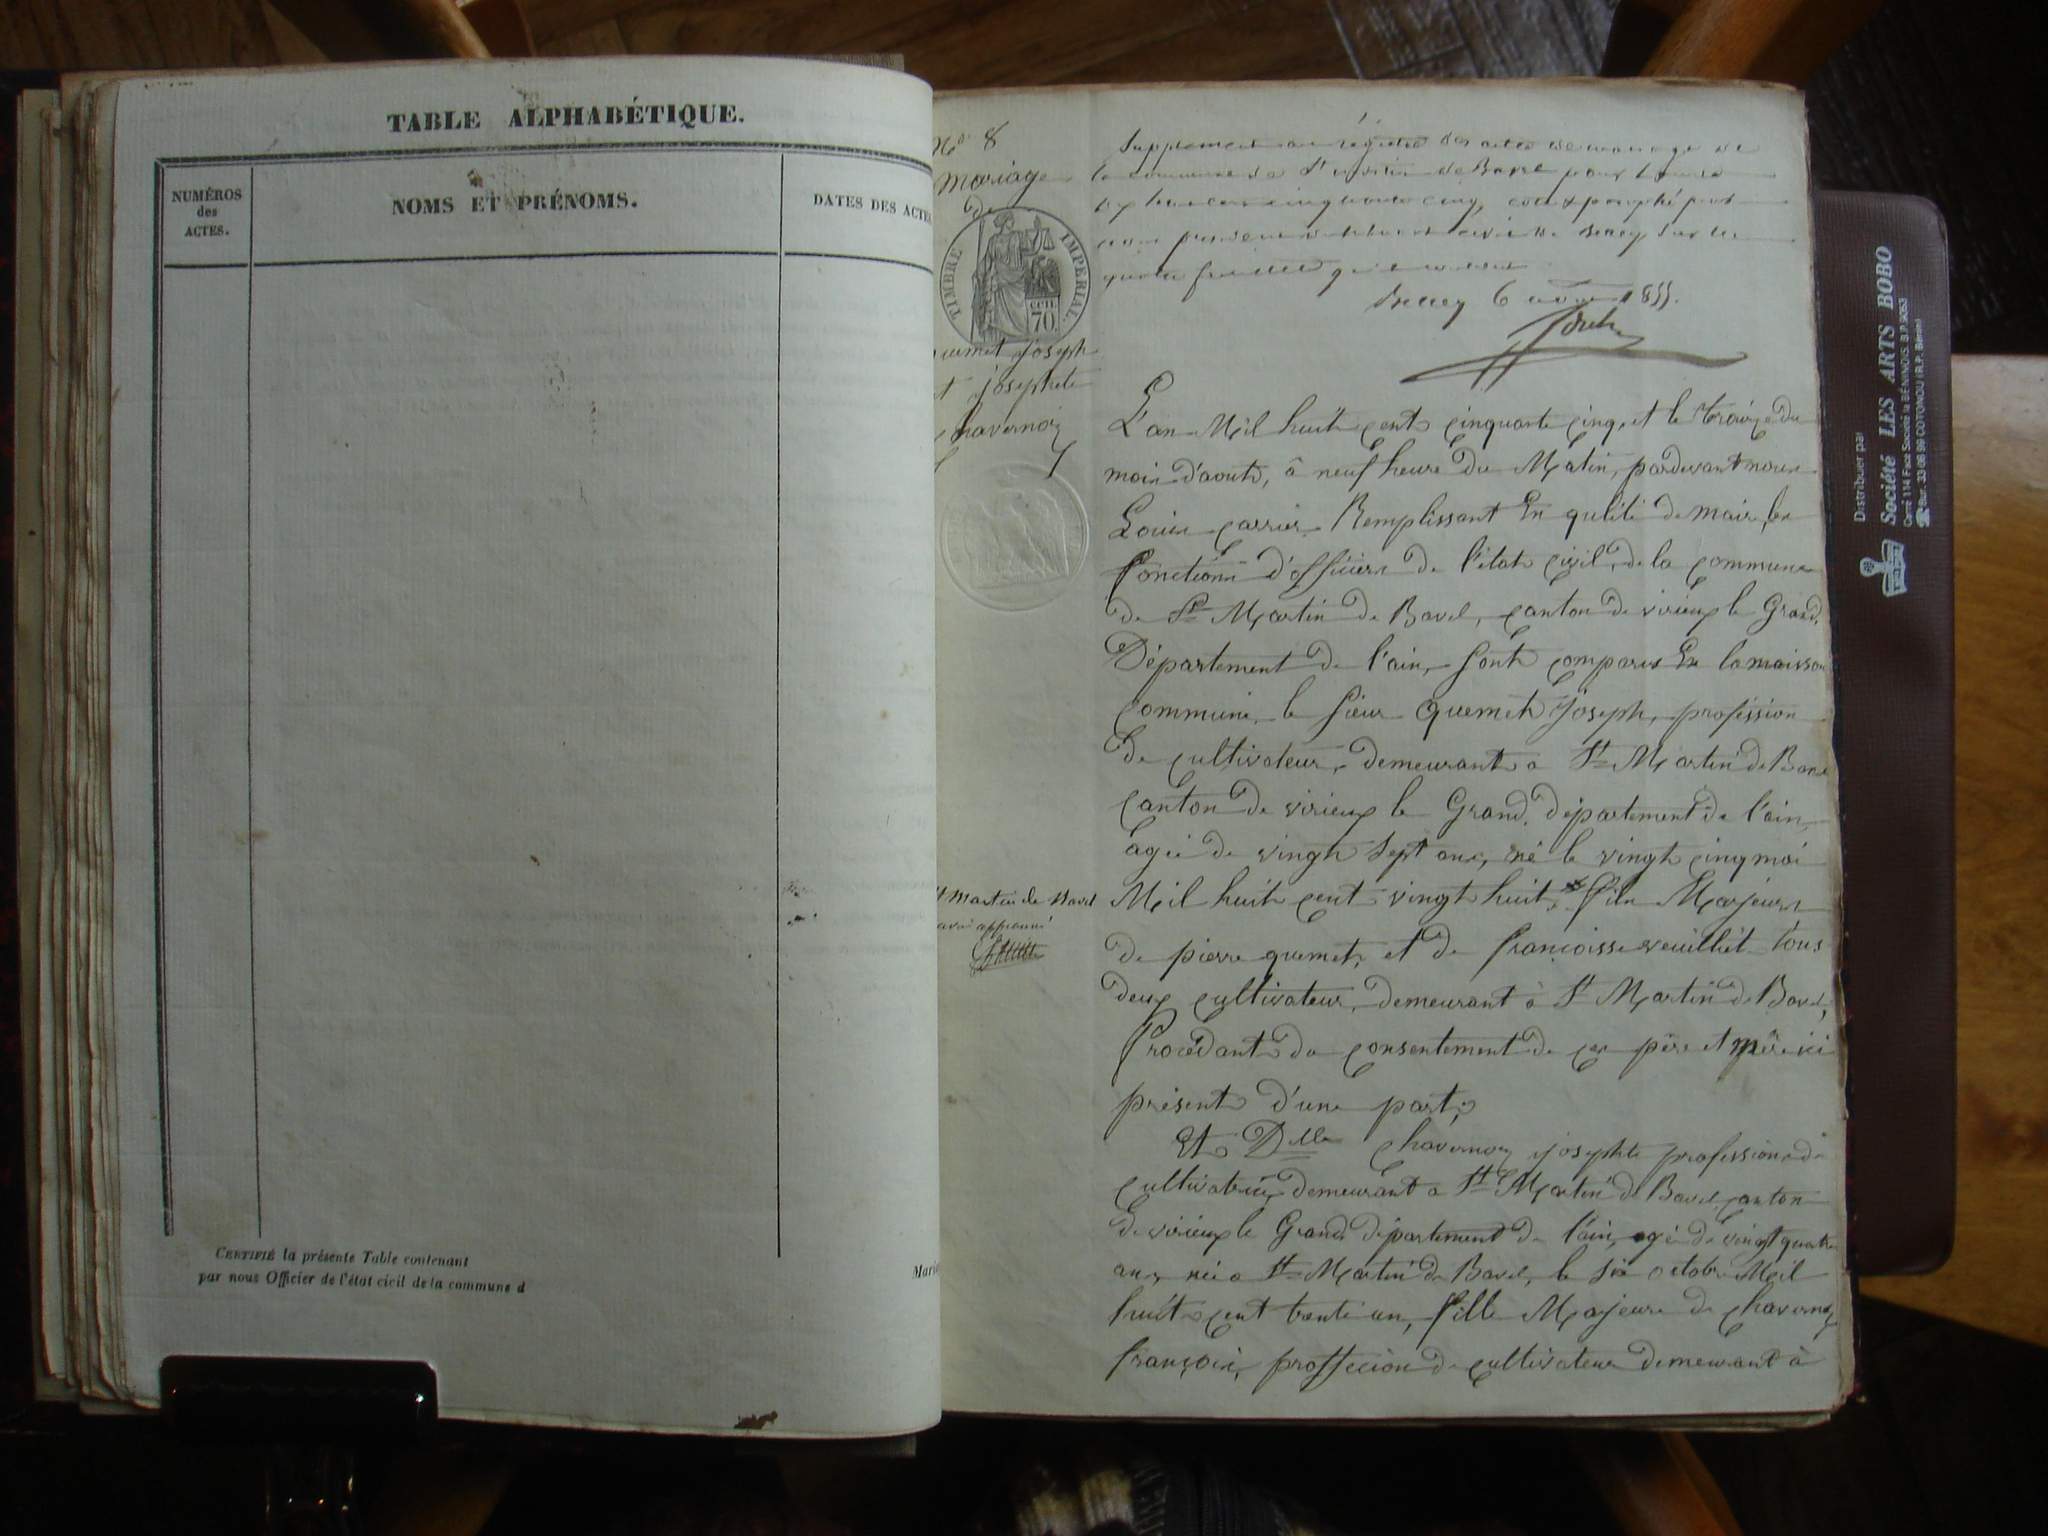 TABLE ALPHABÉTIQUE.
NUMÉROS
des
ACTES.
NOMS ET PRÉNOMS.
DATES DES ACTES
CERTIFIÉ la présente Table contenant
par nous Officier de l'état civil de la commune d
Marie
No 8
Mariage
de
TIMBRE IMPÉRIAL
CEN.
70.
uemet joseph
et josephte
chavernoz
St Martin de Bavel
approuvé
Supplément au régistre des actes de mariage de
la commune de St Martin de Bavel pour l'année
mil huit cent cinquante cinq, coté & paraphé par
nous président du tribunal civil de Belley sur les
quatre feuillets
Belley 6 1855.
L'an Mil huit cent cinquante cinq, et le traize du
mois d'aoute, à neuf heure du Matin, pardevant nous
Louis carrier Remplissant En qulité de maire, les
fonctions d'officiers de l'état civil, de la commune
de St Martin de Bavel, canton de virieux le Grand,
Département de l'ain, sont comparus En la maisson
commune, le sieur quemet joseph, profession
de cultivateur, demeurant a St Martin de Bavel
canton de virieux le Grand, département de l'ain,
agée de vingt sept ans, né le vingt cinq mai
Mil huit cent vingt huit, fils Majeurs
de pierre quemet, et de françoisse veuilliet tous
deux cultivateur, demeurant à St Martin de Bavel,
Procédant du consentement de ces père et mère ici
présent d'une part;
Et Dlle chavernoz josephte profession de
cultivateur demeurant a St Martin de Bavel canton
de virieux le Grand département de l'ain, agé de vingt quatre
ans, née a St Martin de Bavel, le six octobre Mil
huit cent trente un, fille Majeure de chavernoz
françois, proffecion de cultivateur demeurant à
Distribuer par
Société LES ARTS BOBO
Carré 114 Face Société la BÉNINOIS. B.P. 9063
Bur. 33 06 99 COTONOU (R.P. Bénin)